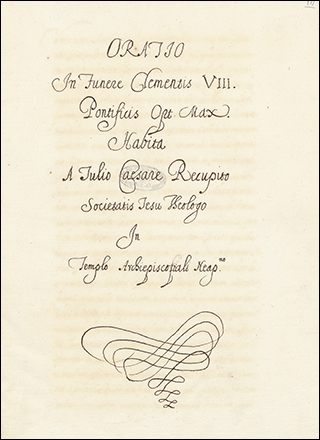 ORATIO
In Funere Clementis VIII.
Pontificis Opt Max.
Habita
A Julio Caesare Recupito
Societatis Jesu Theologo
In
Templo Archiepiscopali Neap.no